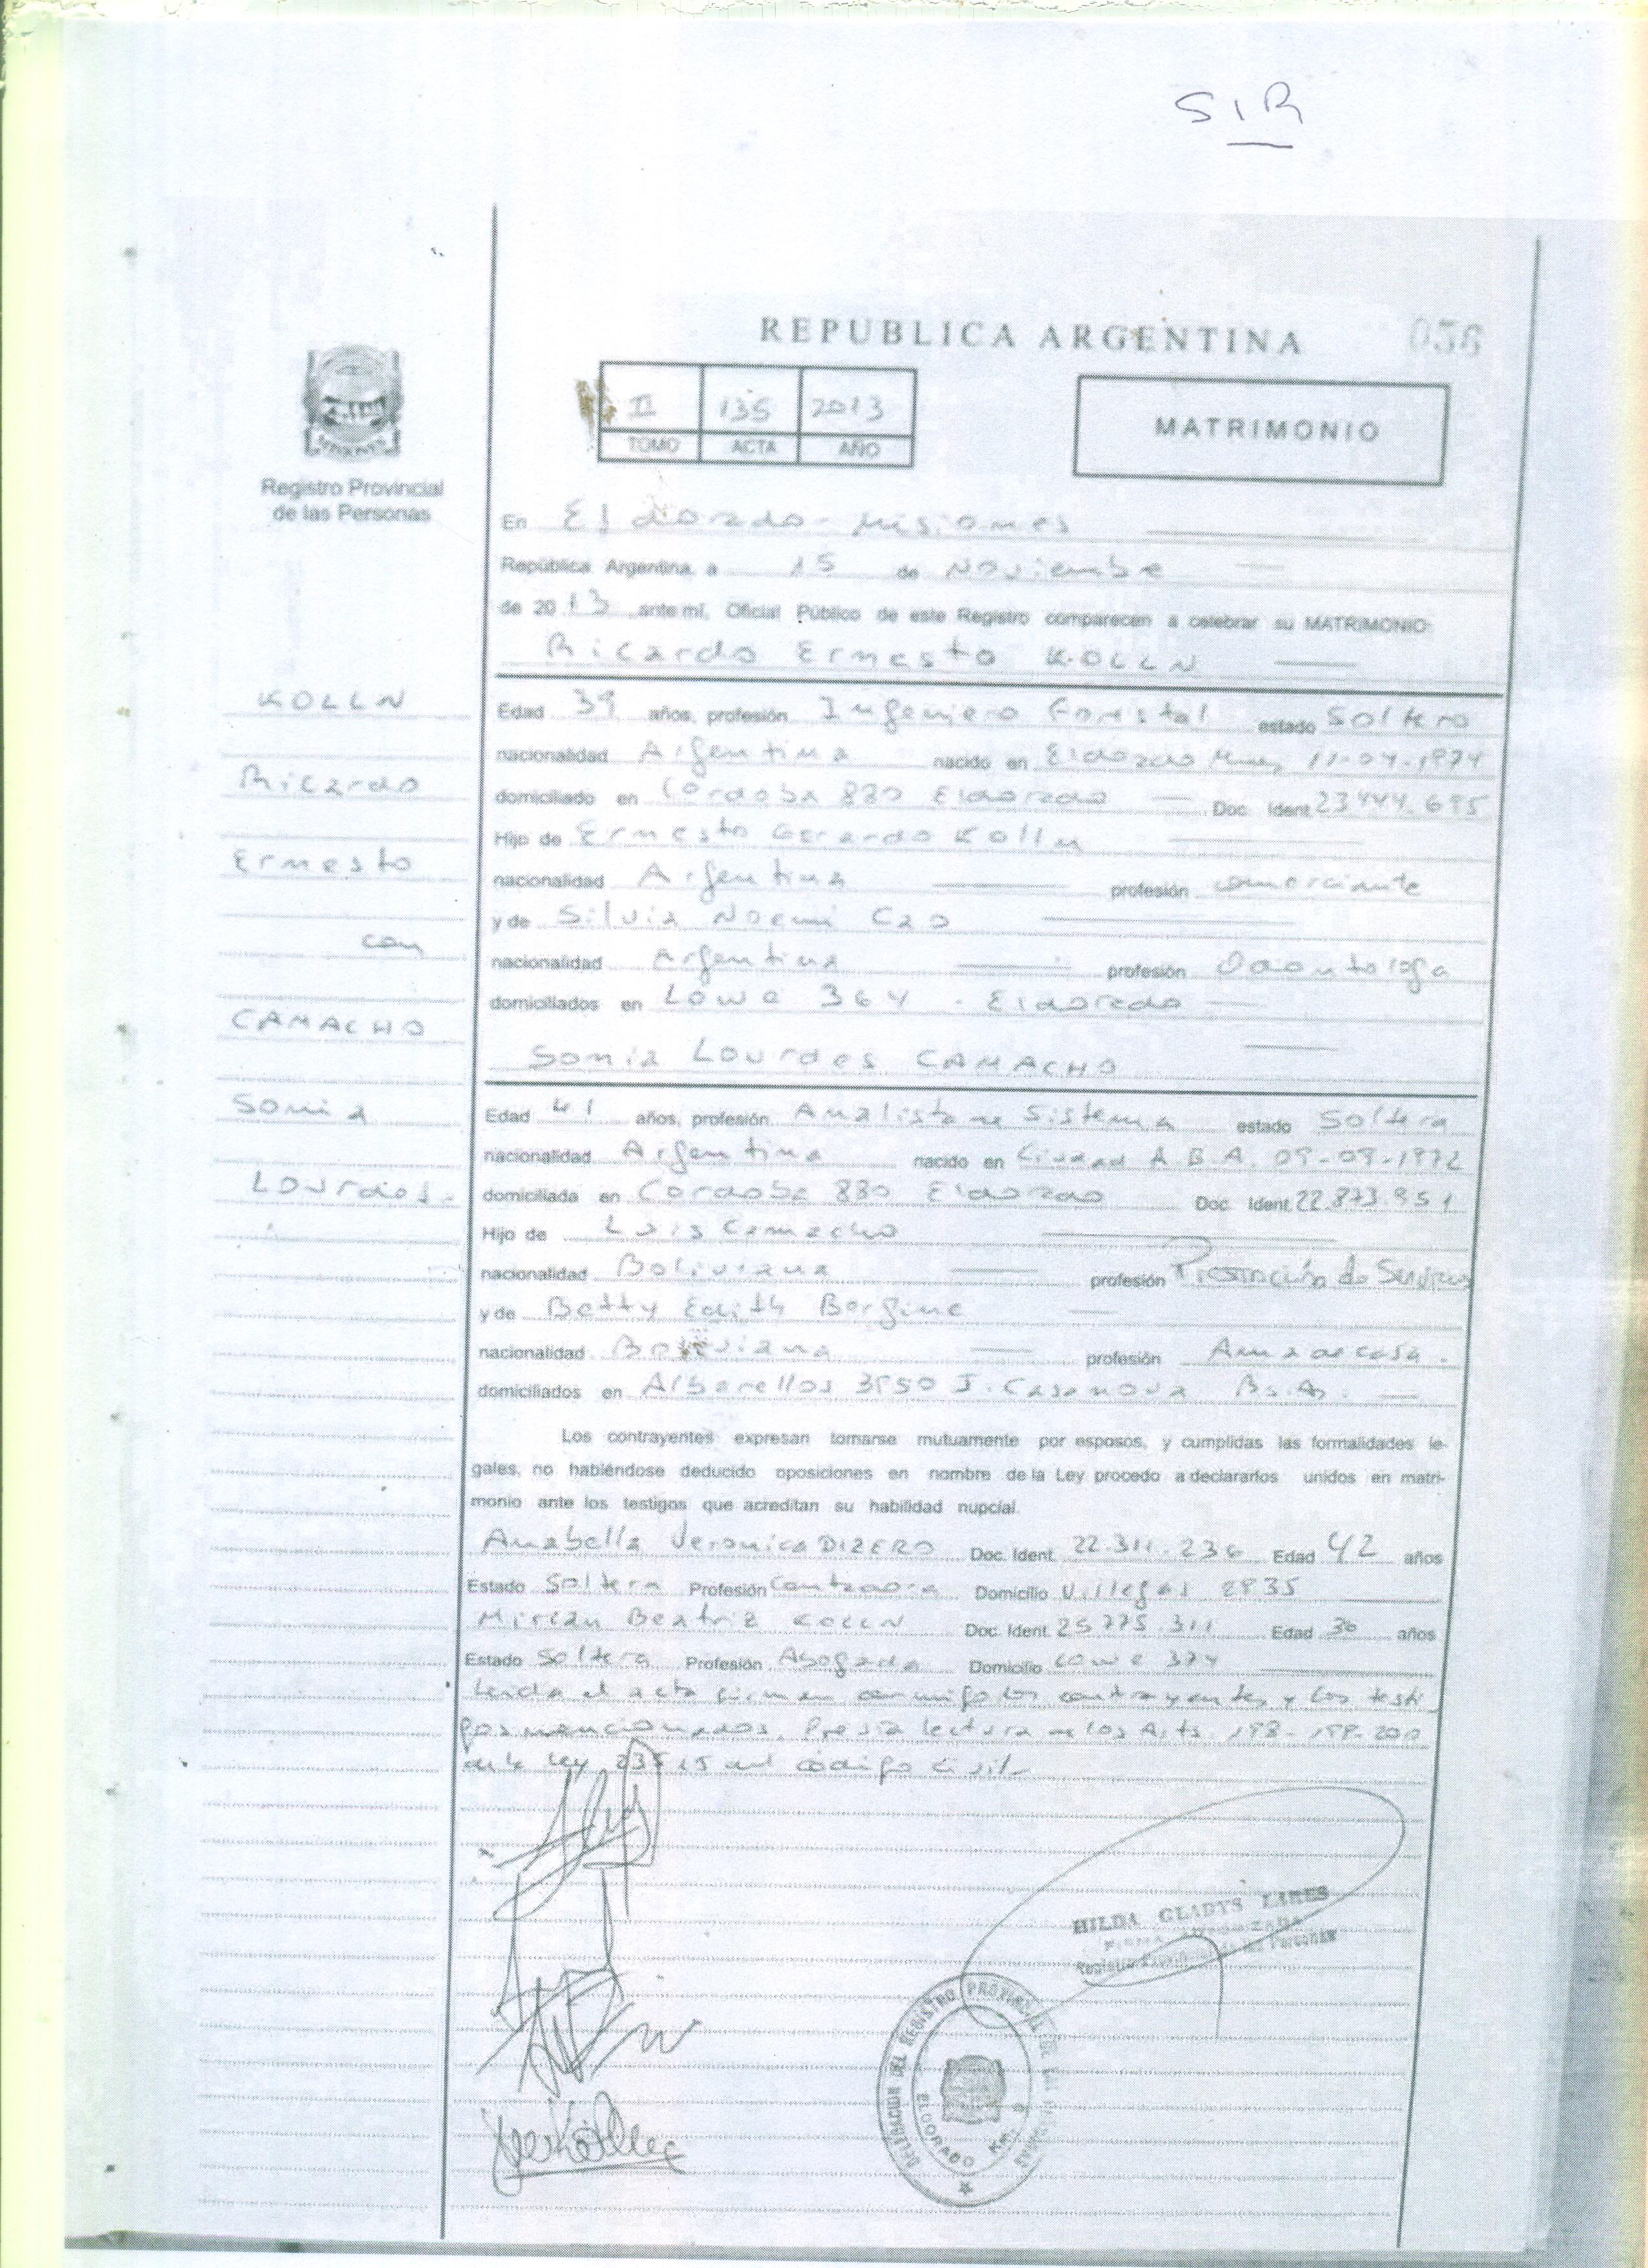 SIR
REPUBLICA ARGENTINA 056
II 135 2013
TOMO ACTA AÑO
MATRIMONIO
Registro Provincial
de las Personas
En Eldorado - Misiones
República Argentina, a 15 de Noviembre
de 2013 ante mí, Oficial Público de este Registro comparecen a celebrar su MATRIMONIO:
Ricardo Ernesto KOLLN
KOLLN
Ricardo
Ernesto
con
CAMACHO
Sonia
Lourdes.
Edad 39 años, profesión Ingeniero Forestal estado Soltero
nacionalidad Argentina nacido en Eldorado Mnes 11-04-1974
domiciliado en Cordoba 880 Eldorado Doc. Ident. 23.444.695
Hijo de Ernesto Gerardo Kolln
nacionalidad Argentina profesión comerciante
y de Silvia Noemi Cao
nacionalidad Argentina profesión Odontologa
domiciliados en Lowe 364 - Eldorado
Sonia Lourdes CAMACHO
Edad 41 años, profesión Analista de Sistema estado Soltera
nacionalidad Argentina nacido en Ciudad A.B.A. 09-09-1972
domiciliada en Cordoba 880 Eldorado Doc. Ident. 22.873.951
Hijo de Luis Camacho
nacionalidad Boliviana profesión Prestación de Servicios
y de Betty Edith
nacionalidad Boliviana profesión Ama de casa.
domiciliados en Albarellos 3550 I. Casanova Bs.As.
Los contrayentes expresan tomarse mutuamente por esposos, y cumplidas las formalidades le-
gales, no habiéndose deducido oposiciones en nombre de la Ley procedo a declararlos unidos en matri-
monio ante los testigos que acreditan su habilidad nupcial.
Anabella Veronica DIZERO Doc. Ident. 22.311.236 Edad 42 años
Estado Soltera Profesión Contadora Domicilio Villegas 2835
Mirian Beatriz KOLLN Doc. Ident. 25.775.311 Edad 36 años
Estado Soltera Profesión Abogada Domicilio Lowe 374
Leida el acta firman conmigo los contrayentes y los testi
gos mencionados. Previa lectura de los Arts. 198-199-200
de la Ley 23515 del código civil
HILDA GLADYS LARES
Registro Provincial de las Personas
DELEGACION DEL REGISTRO PROVINCIAL DE LAS PERSONAS
ELDORADO KM. 9